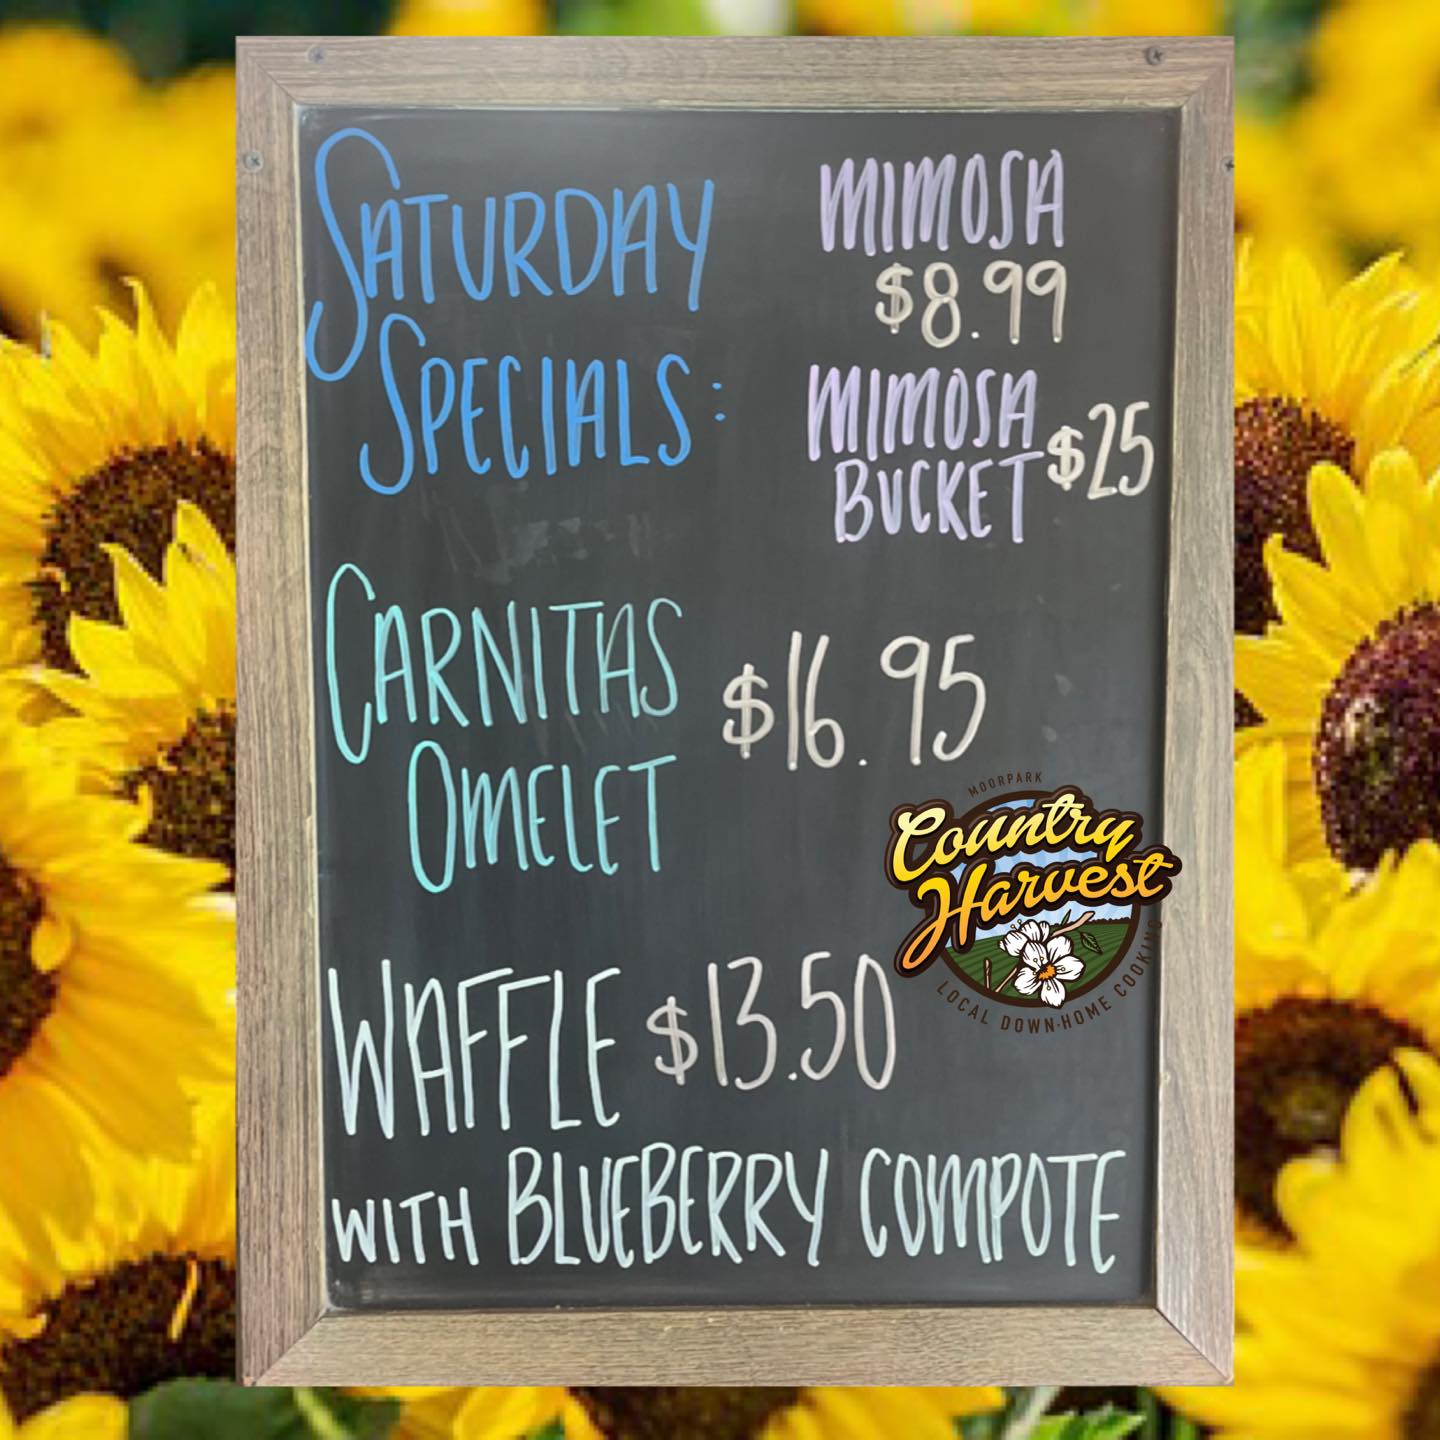 SATURDAY
SPECIALS:
MIMOSA
$8.99
MIMOSA
BUCKET $25
CARNITAS
OMELET $16.95
MOORPARK
Country
Harvest
LOCAL DOWN-HOME COOKING
WAFFLE $13.50
WITH BLUEBERRY COMPOTE